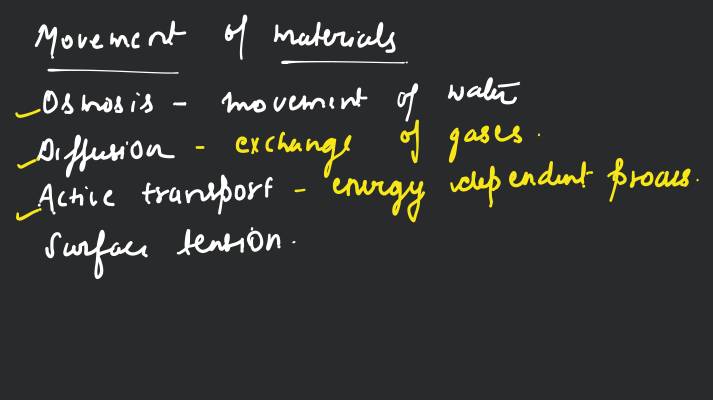 Movement of materials
Osmosis - movement of water
Diffusion - exchange of gases.
Active transport - energy dependent process.
Surface tension.